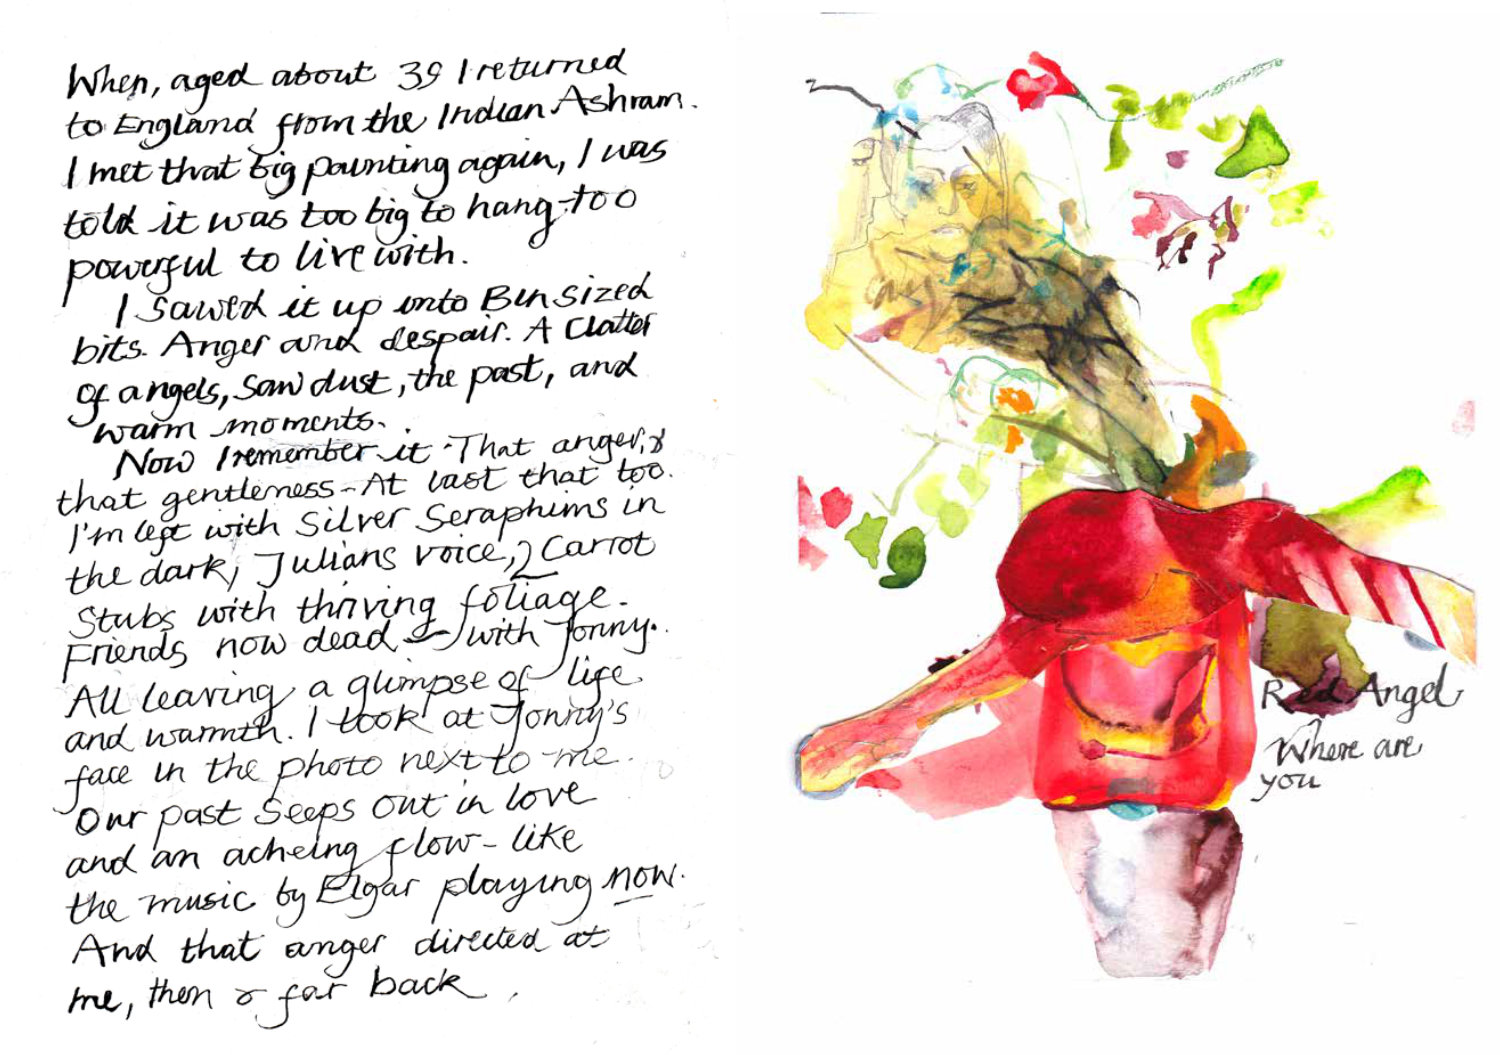 When, aged about 39 I returned
to England from the Indian Ashram.
I met that big painting again, I was
told it was too big to hang-too
powerful to live with.
I sawed it up into Bin sized
bits. Anger and despair. A Clatter
of angels, saw dust, the past, and
warm moments.
Now I remember it. That anger, &
that gentleness - At last that too.
I'm left with Silver Seraphims in
the dark, Julians voice, 2 Carrot
Stubs with thriving foliage.
Friends now dead - with Jonny.
All leaving a glimpse of life
and warmth. I look at Jonny's
face in the photo next to me.
Our past seeps out in love
and an acheing flow - like
the music by Elgar playing now.
And that anger directed at
me, then & far back.
Red Angel
Where are
you